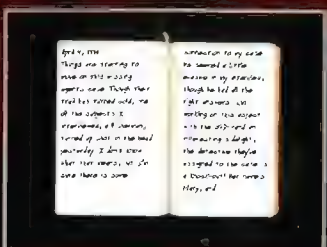 April 4, 1974
Things are starting to
move on this missing
agents case. Though their
trail has turned cold, one
of the subjects I
interviewed,
turned up shot in the head
yesterday. I don't know
what that means, but I'm
sure there is some
connection to my case.
He seemed a little
evasive in my interview,
though he had all the
right answers. I'm
working on this aspect
with the
interesting delight,
the detective they've
assigned to the case is
a knock-out! Her name's
Mary, and